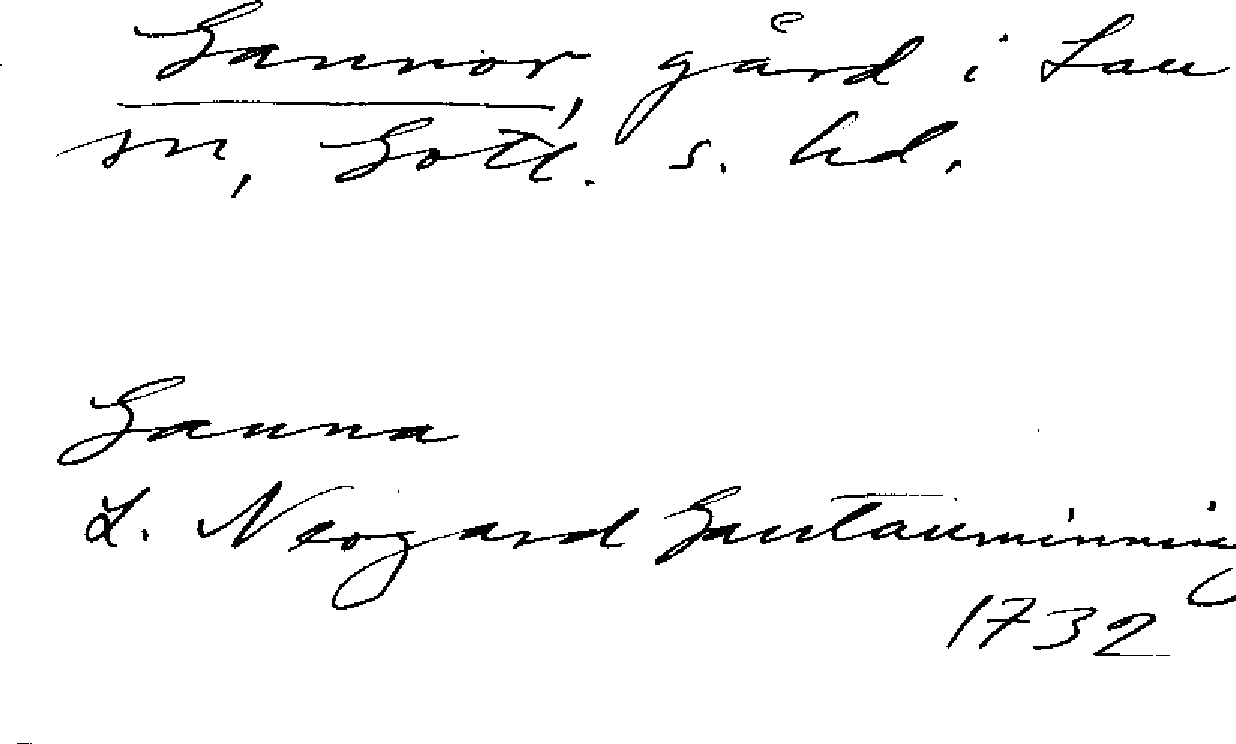 Gannor, gård i Lau
sn, Gotl. s. hd.
Ganna
L. Neogard Gautauminning
1732